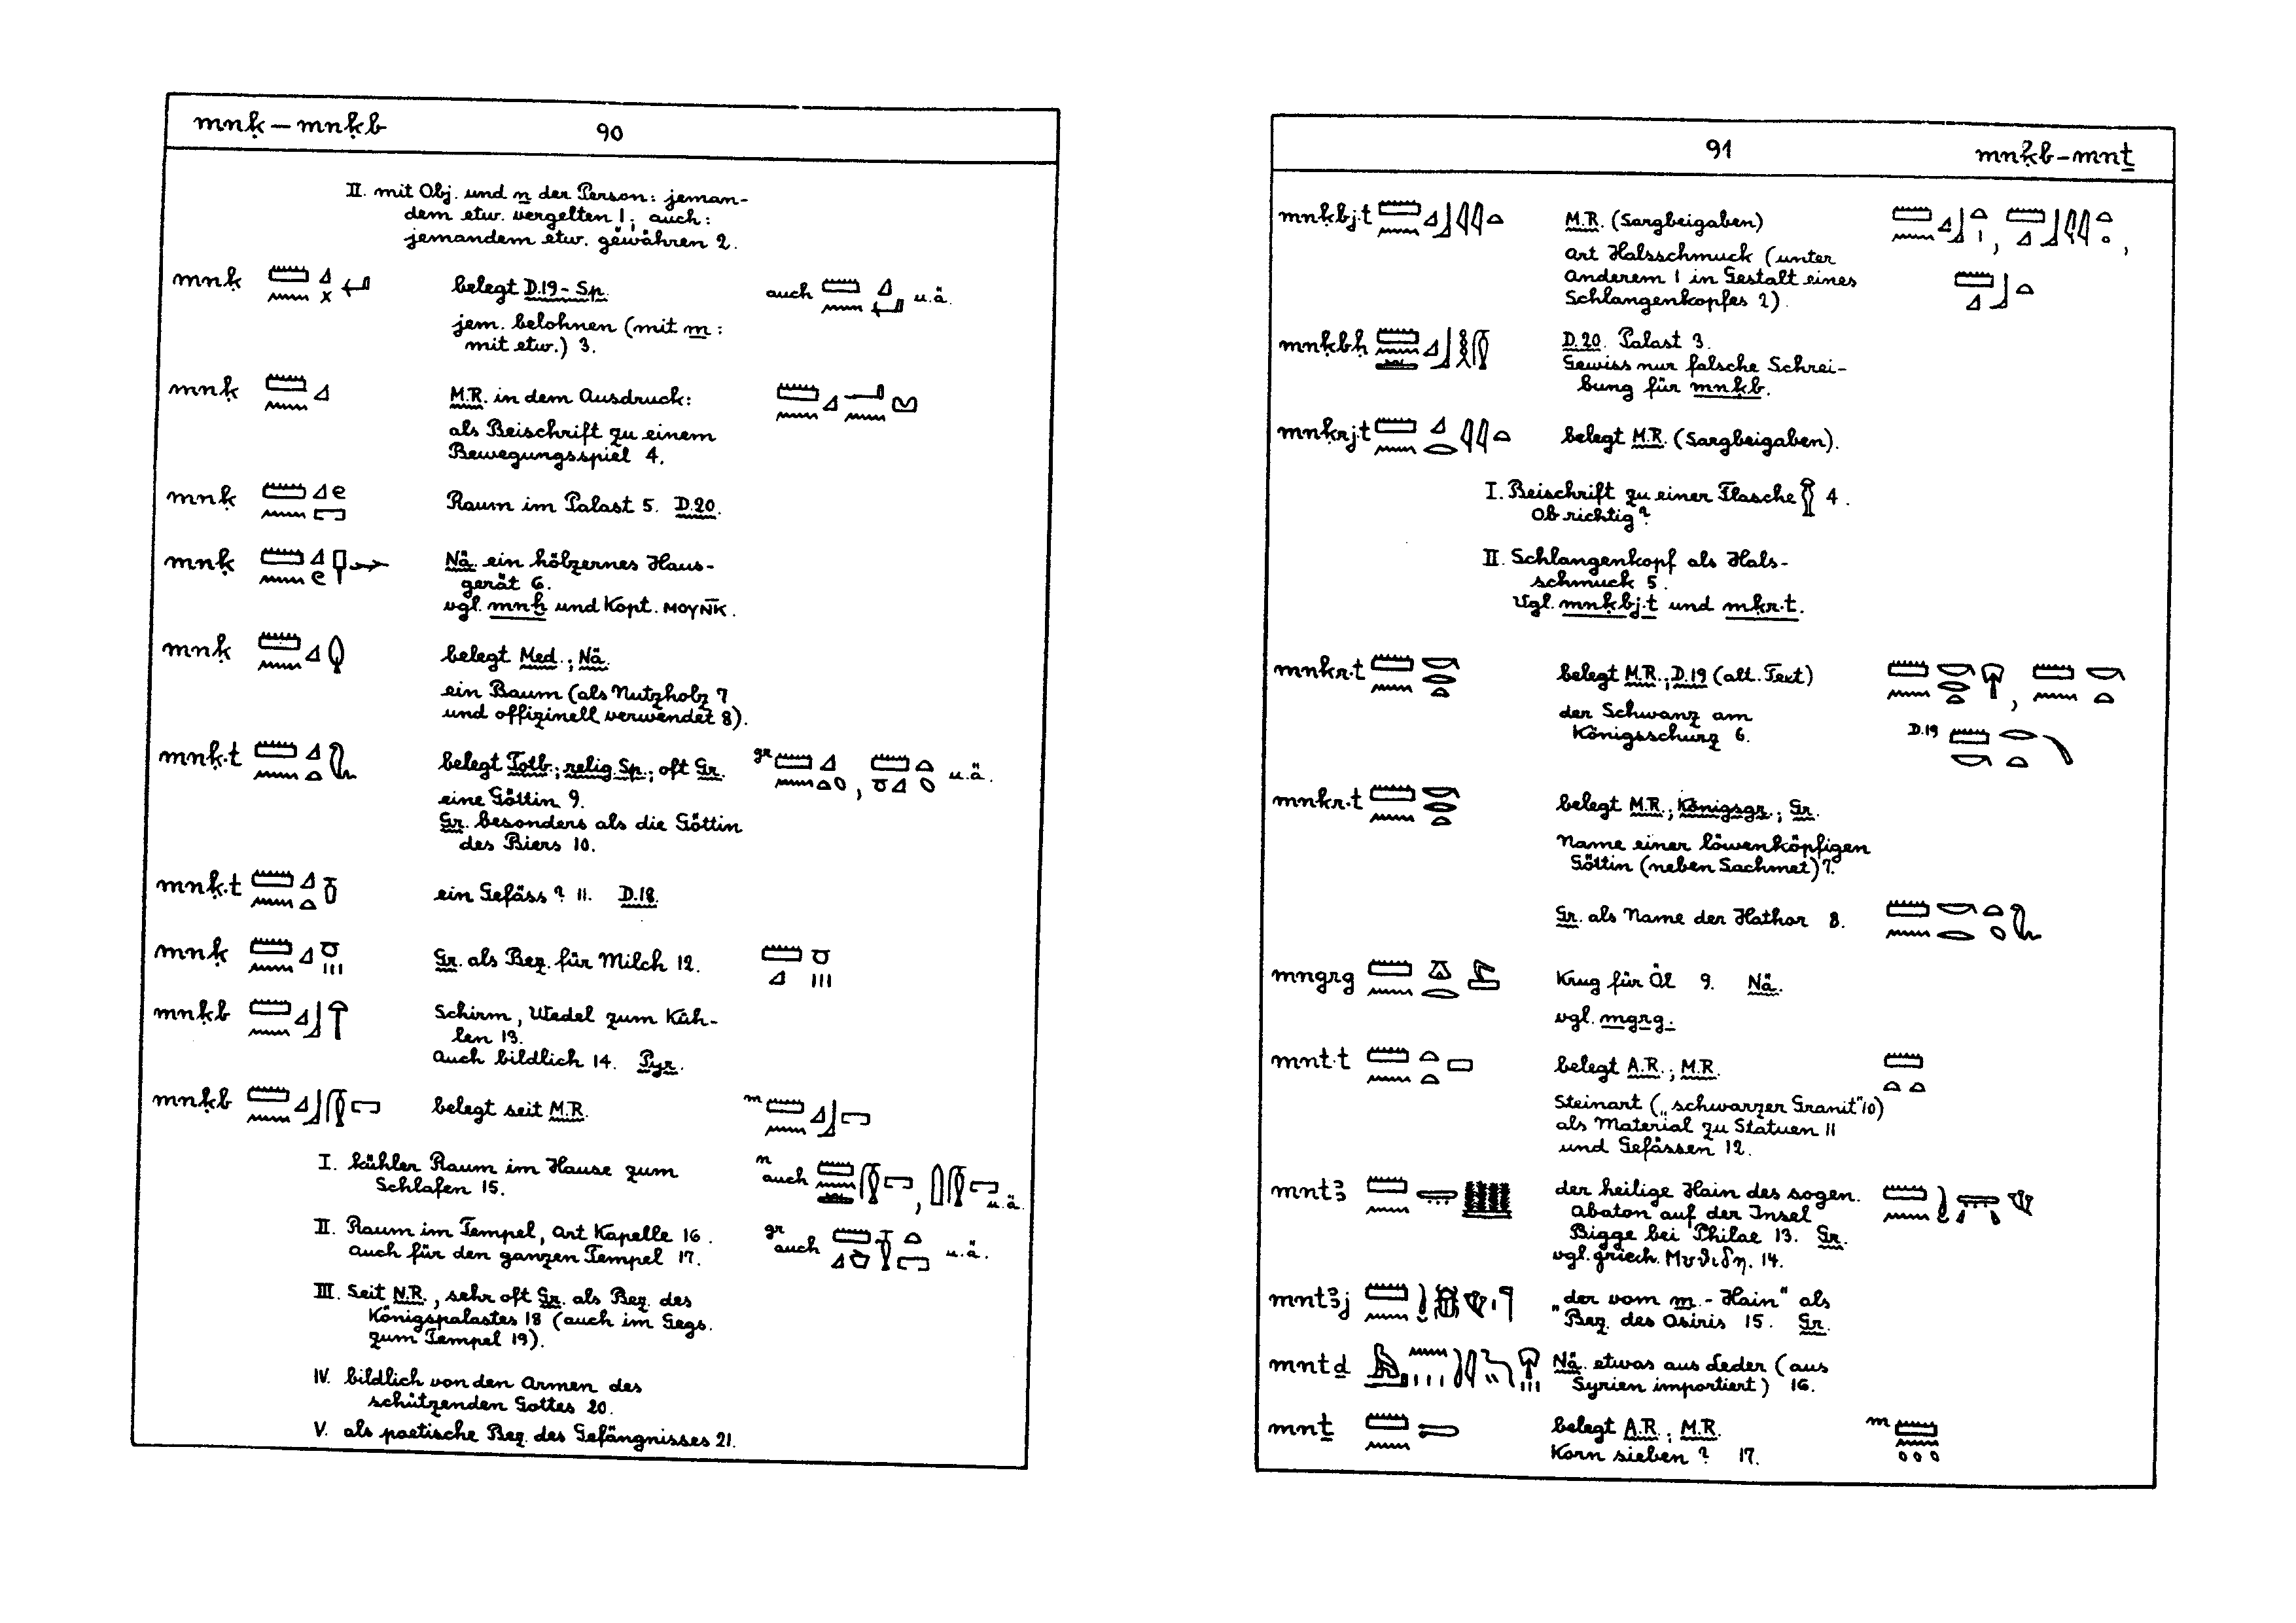 mnḳ – mnḳb 90
II. mit Obj. und n der Person: jeman-
dem etw. vergelten 1; auch:
jemandem etw. gewähren 2.
mnḳ belegt D.19 - Sp. auch u.ä.
jem. belohnen (mit m:
mit etw.) 3.
mnḳ M.R. in dem Ausdruck:
als Beischrift zu einem
Bewegungsspiel 4.
mnḳ Raum im Palast 5. D.20.
mnḳ Nä. ein hölzernes Haus-
gerät 6.
vgl. mnḫ und Kopt. ⲙⲟⲩⲛ̅ⲕ̅.
mnḳ belegt Med.; Nä.
ein Baum (als Nutzholz 7
und offizinell verwendet 8).
mnḳ.t belegt Totb.; relig. Sp.; oft Gr. gr , u.ä.
eine Göttin 9.
Gr. besonders als die Göttin
des Biers 10.
mnḳ.t ein Gefäss? 11. D.18.
mnḳ Gr. als Bez. für Milch 12.
mnḳb Schirm, Wedel zum Küh-
len 13.
Auch bildlich 14. Pyr.
mnḳb belegt seit M.R. m
I. kühler Raum im Hause zum n auch , u.ä.
Schlafen 15.
II. Raum im Tempel, Art Kapelle 16. gr auch u.ä.
auch für den ganzen Tempel 17.
III. Seit N.R., sehr oft Gr. als Bez. des
Königspalastes 18 (auch im Gegs.
zum Tempel 19).
IV. bildlich von den Armen des
schützenden Gottes 20.
V. als poetische Bez. des Gefängnisses 21.
91 mnḳb – mnṯ
mnḳbj.t M.R. (Sargbeigaben) , ,
Art Halsschmuck (unter
Anderem 1 in Gestalt eines
Schlangenkopfes 2).
mnḳbḥ D.20. Palast 3.
Gewiss nur falsche Schrei-
bung für mnḳb.
mnḳrj.t belegt M.R. (Sargbeigaben).
I. Beischrift zu einer Flasche 4.
Ob richtig?
II. Schlangenkopf als Hals-
schmuck 5.
Vgl. mnḳbj.t und mḳr.t.
mnkr.t belegt M.R.; D.19 (alt. Text) ,
der Schwanz am
Königsschurz 6. D.19
mnkr.t belegt M.R.; Königsgr.; Gr.
Name einer löwenköpfigen
Göttin (neben Sachmet) 7.
Gr. als Name der Hathor 8.
mngrg Krug für Öl 9. Nä.
vgl. mgrg.
mnt.t belegt A.R.; M.R.
Steinart („schwarzer Granit“ 10)
als Material zu Statuen 11
und Gefässen 12.
mntꜣ der heilige Hain des sogen.
Abaton auf der Insel
Bigge bei Philae 13. Gr.
vgl. griech. Μνθιδη. 14.
mntꜣj „der vom m.-Hain“ als
Bez. des Osiris 15. Gr.
mntḏ Nä. etwas aus Leder (aus
Syrien importiert) 16.
mnṯ belegt A.R.; M.R. m
Korn sieben? 17.